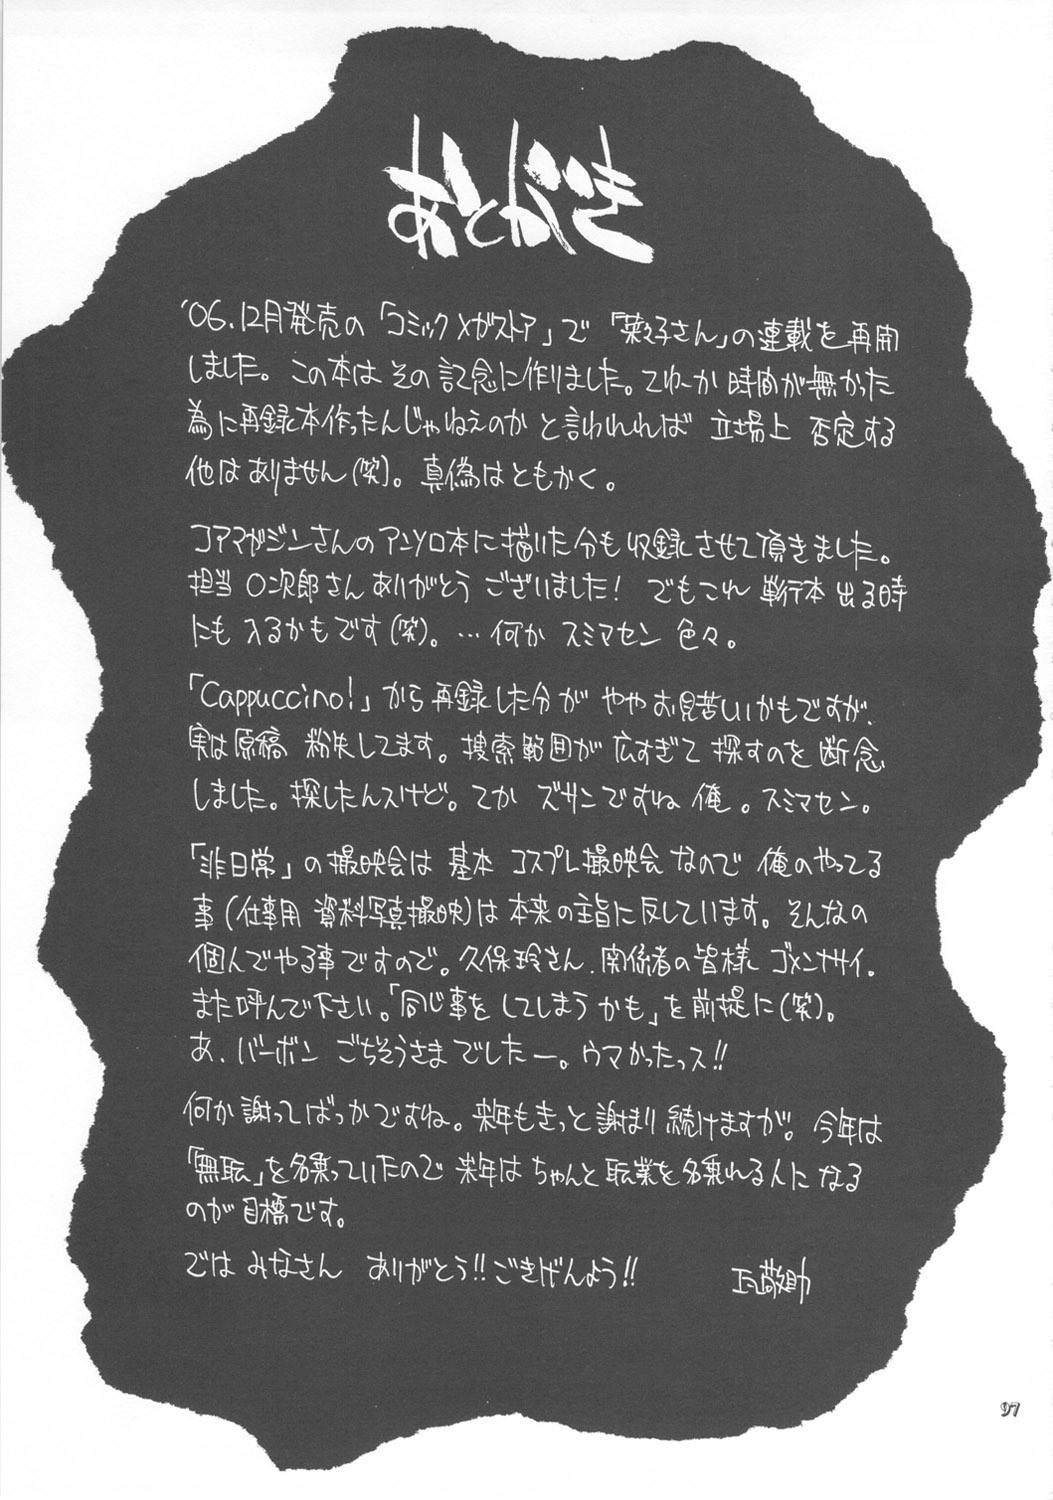 あとがき
'06.12月発売の「コミックメガストア」で「菜々子さん」の連載を再開
しました。この本はその記念に作りました。てゆーか時間が無かった
為に再録本作ったんじゃねえのかと言われれば 立場上 否定する
他はありません(笑)。真偽はともかく。
コアマガジンさんのアンソロ本に描いた分も収録させて頂きました。
担当〇次郎さんありがとうございました! でもこれ単行本出る時
にも入るかもです(笑)。…何か スミマセン 色々。
「Cappuccino!」から再録した分が ややお見苦しいかもですが、
実は原稿 紛失してます。捜索範囲が広すぎて探すのを断念
しました。探したんスけど。てか ズサンですね 俺。スミマセン。
「非日常」の撮映会は 基本 コスプレ撮映会なので 俺のやってる
事(仕事用 資料写真撮映)は本来の主旨に反しています。そんなの
個人でやる事ですので。久保玲さん、関係者の皆様 ゴメンナサイ。
また呼んで下さい。「同じ事をしてしまうかも」を前提に(笑)。
あ、バーボン ごちそうさまでしたー。ウマかったっス!!
何か謝ってばっかですね。来年もきっと謝まり続けますが。今年は
「無職」を名乗っていたので 来年は ちゃんと 職業を名乗れる人になる
のが目標です。
では みなさん ありがとう!!ごきげんよう!!
敬助
97